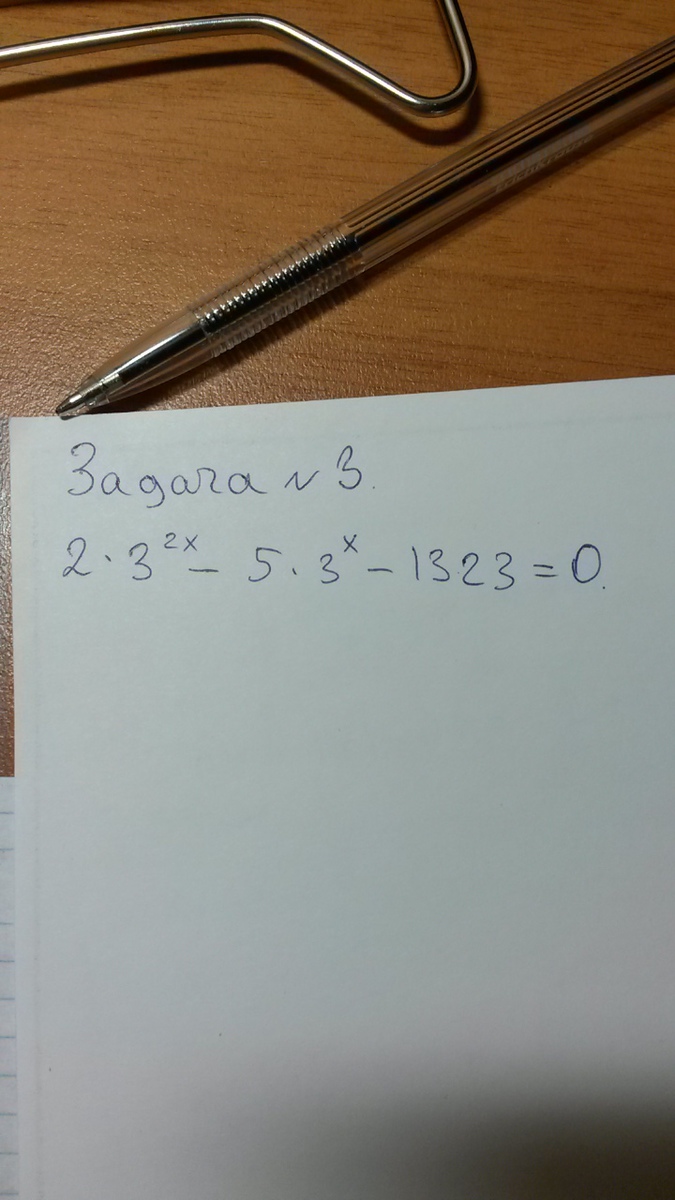 Задача N 3.
2 · 3^{2x} - 5 · 3^x - 1323 = 0.